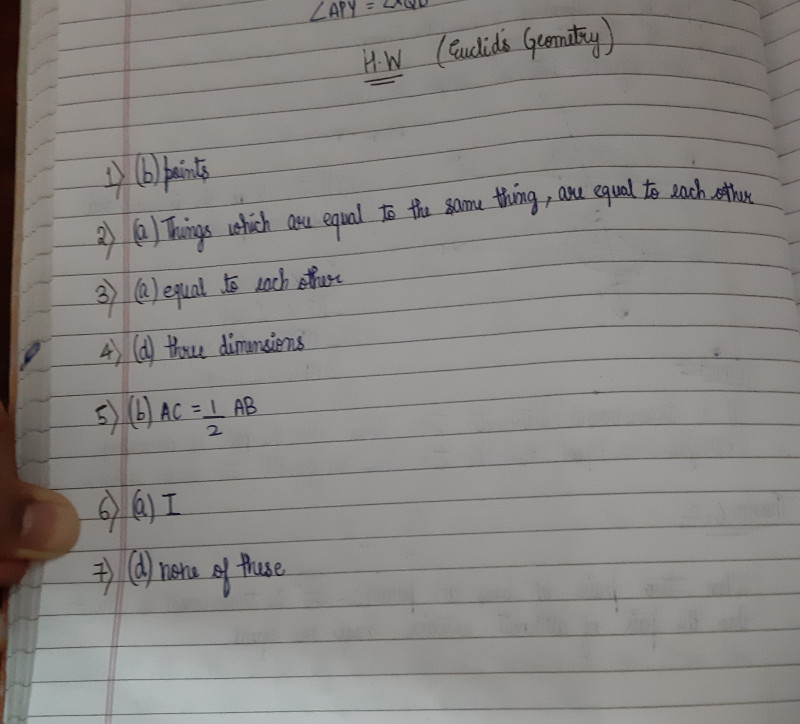 ∠APY =
H.W (Euclid's Geometry)
1) (b) points
2) (a) Things which are equal to the same thing, are equal to each other
3) (a) equal to each other
4) (d) three dimensions
5) (b) AC = 1/2 AB
6) (a) I
7) (d) none of these